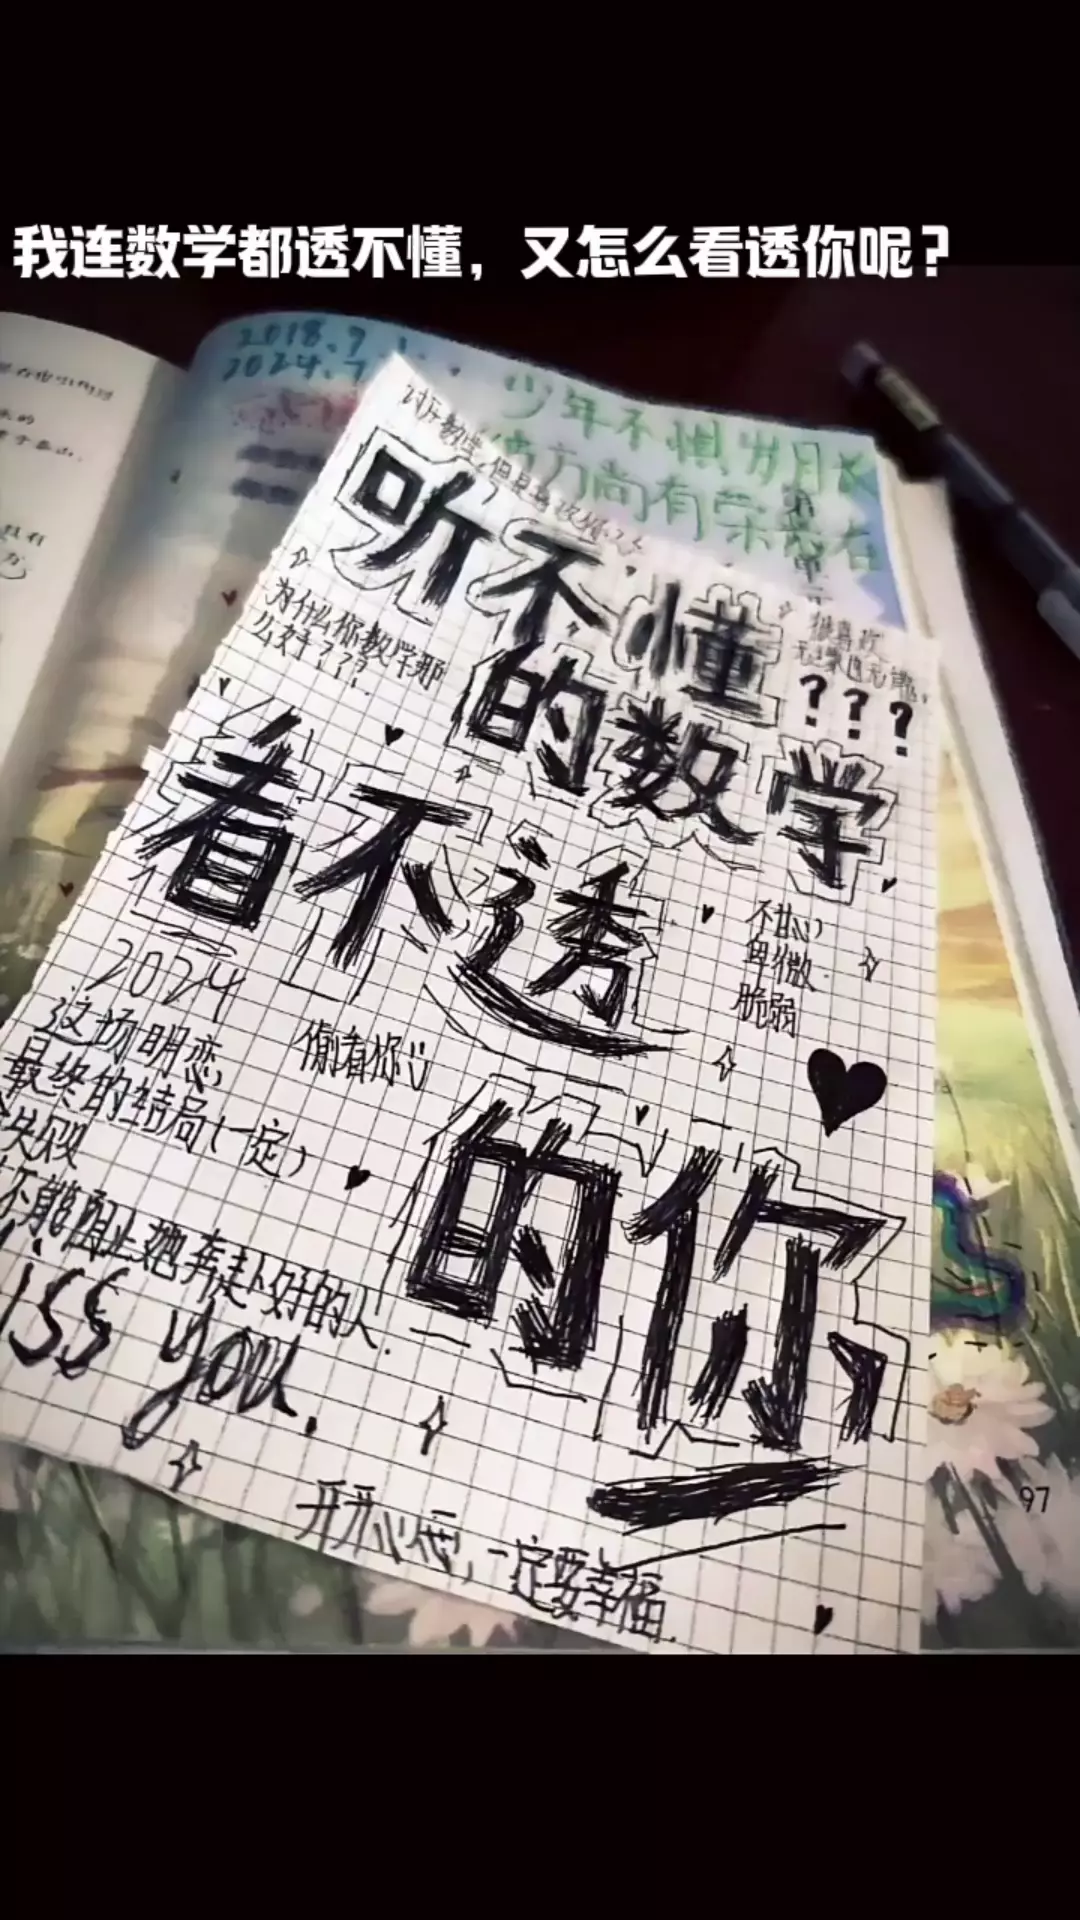 我连数学都透不懂，又怎么看透你呢？
2018.9.1.
2024.7
少年不惧岁月长
彼方尚有荣光在
讨厌数学，但
听不懂
的数学
很喜欢
？？？
为什么你数学那
么好？？？
看不透
的你
不甘心
卑微
脆弱
2024
偷看你
这场明恋
最终的结局（一定）
失败
不能阻止她奔赴好的人.
iss you.
开开心心, 一定要幸福.
97